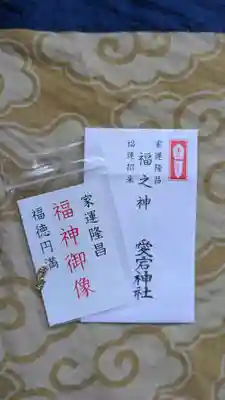 家運隆昌
福運招来
福之神
愛宕神社
家運隆昌
福神御像
福徳円満